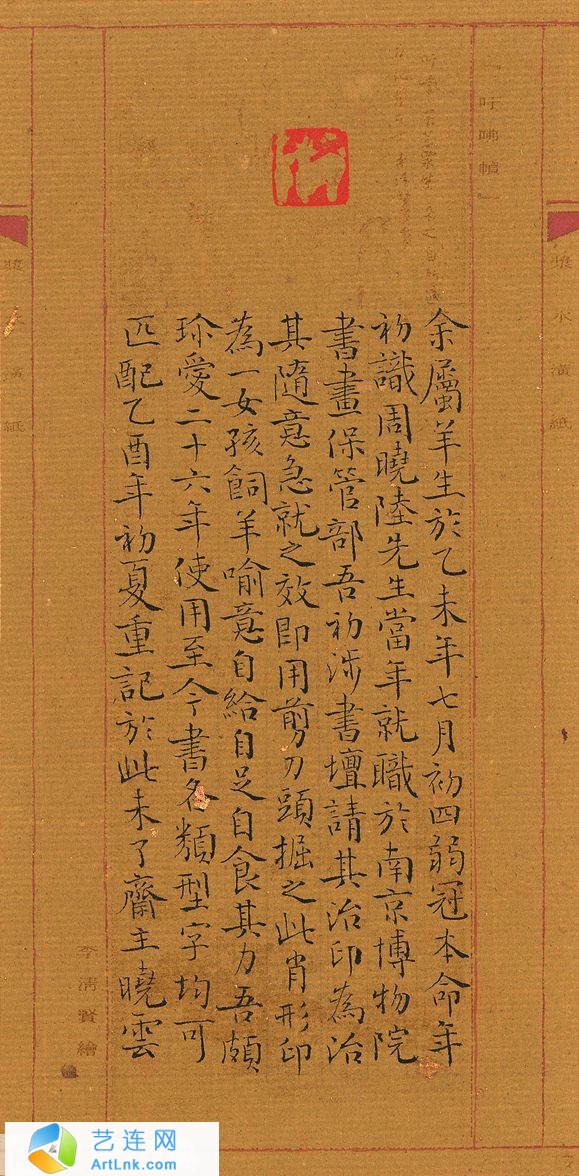 余屬羊生於乙未年七月初四弱冠本命年
初識周曉陸先生當年就職於南京博物院
書畫保管部吾初涉書壇請其治印為治
其隨意急就之效即用剪刀頭掘之此肖形印
為一女孩飼羊喻意自給自足自食其力吾頗
珍愛二十六年使用至今書各類型字均可
匹配乙酉年初夏重記於此未了齋主曉雲
李清賓繪
艺连网
ArtLnk.com